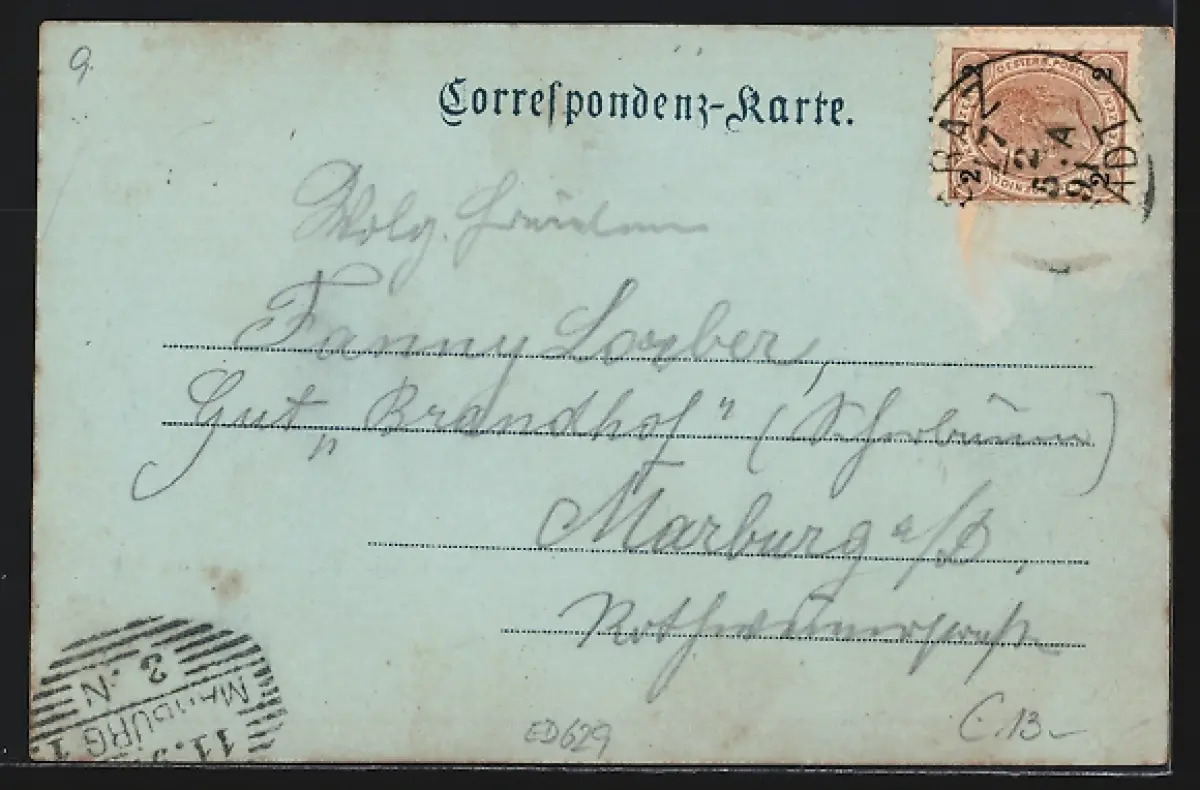 9.
Correspondenz-Karte.
OESTERR. POST
2 2 2 2
GRAZ STADT
Wolg. Fräulein
Fanny Lorber,
Gut „Brandhof"
Marburg a/D,
MARBURG 1
3. N
11.
ED629
C. 13-